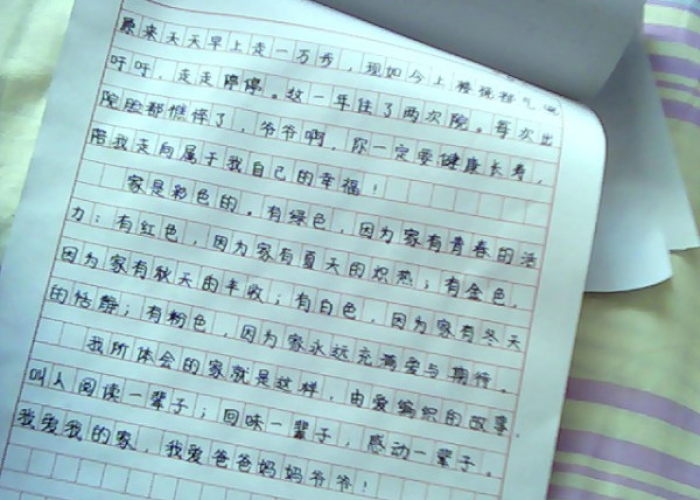 原来天天早上走一万步，现如今上楼梯都气喘
吁吁，走走停停。这一年住了两次院。每次出
院脸都憔悴了，爷爷啊，你一定要健康长寿，
陪我走向属于我自己的幸福！
家是彩色的。有绿色，因为家有青春的活
力；有红色，因为家有夏天的炽热；有金色，
因为家有秋天的丰收；有白色，因为家有冬天
的恬静；有粉色，因为家永远充满爱与期待。
我所体会的家就是这样，由爱编织的故事。
叫人阅读一辈子；回味一辈子，感动一辈子。
我爱我的家，我爱爸爸妈妈爷爷！